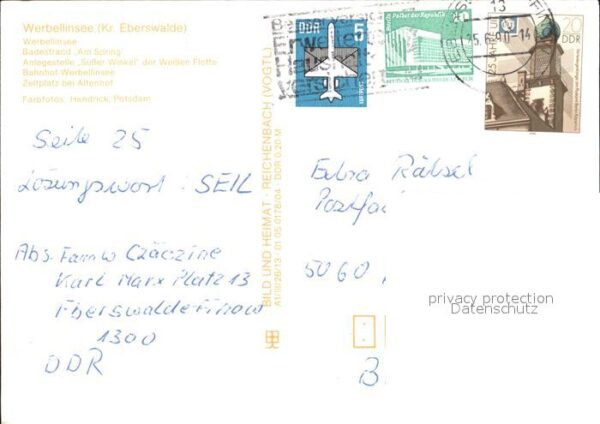 Werbellinsee (Kr. Eberswalde)
Werbellinsee
Badestrand „Am Spring"
Anlegestelle „Süßer Winkel" der Weißen Flotte
Bahnhof Werbellinsee
Zeltplatz bei Altenhof
Farbfotos: Handrick, Potsdam
Seite 25
Lösungswort: SEIL
Abs. Fam. W. Czäczine
Karl Marx Platz 13
Eberswalde-Finow
1300
DDR
BILD UND HEIMAT · REICHENBACH (VOGTL)
A1/III/26/13 · 01 05 0178/04 · DDR 0,20 M
DDR
5
Palast der Republik
10
13
15.6.90-14
20
DDR
Extra Rätsel
Postfa
5060
B
privacy protection
Datenschutz